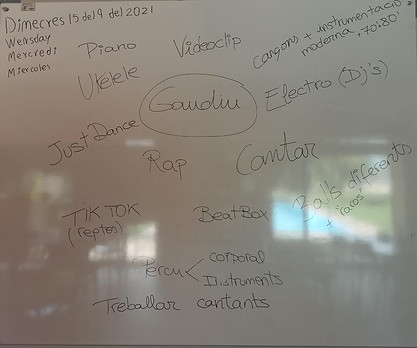 Dimecres 15 del 9 del 2021
Wensday
Mercredi
Miercoles
Piano
Videoclip
Cançons + instrumentació
moderna, 70' 80'
Ukelele
Gaudiu
Electro (Dj's)
Just Dance
Rap
Cantar
Balls diferents
+ "raros"
TIK TOK
(reptos)
BeatBox
Percu < corporal
Instruments
Treballar cantants